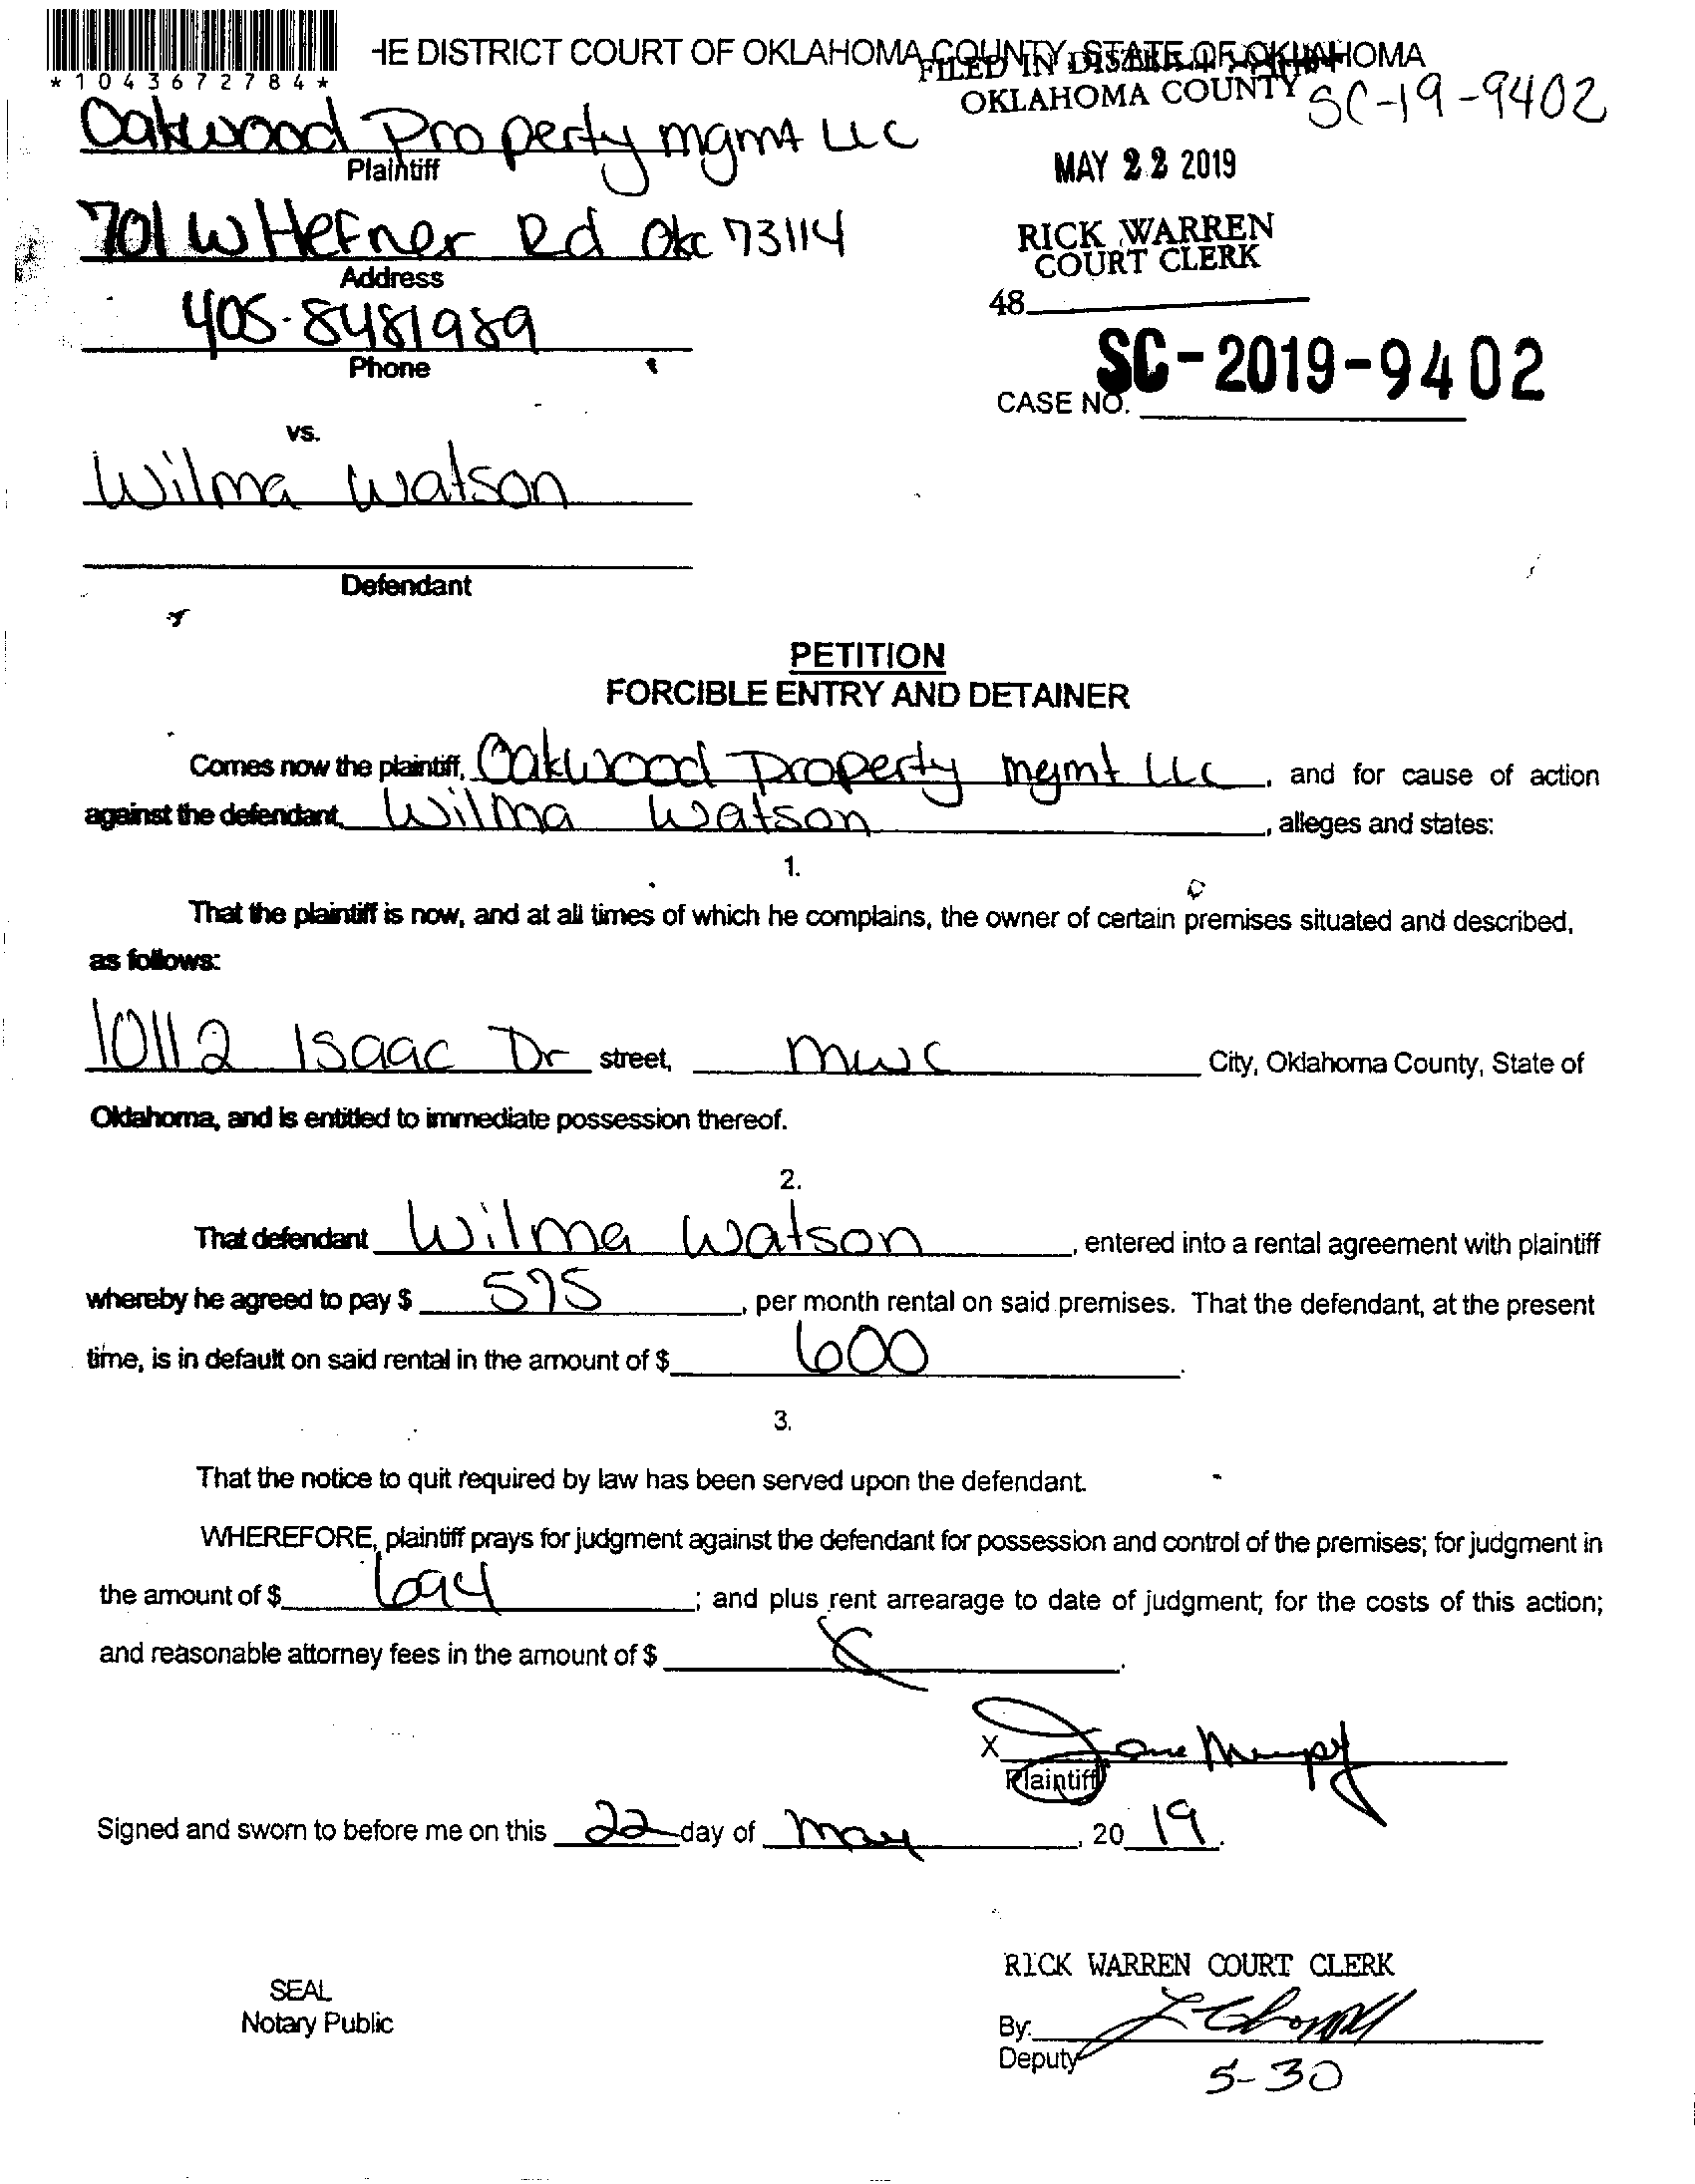 *1043672784*
HE DISTRICT COURT OF OKLAHOMA COUNTY, STATE OF OKLAHOMA
FILED IN DISTRICT COURT
OKLAHOMA COUNTY
SC-19-9402
Oakwood Property mgmt LLC
Plaintiff
MAY 22 2019
701 W Hefner Rd Okc 73114
Address
RICK WARREN
COURT CLERK
405-8481989
Phone
48
SC-2019-9402
CASE NO.
vs.
Wilma Watson
Defendant
PETITION
FORCIBLE ENTRY AND DETAINER
Comes now the plaintiff, Oakwood Property mgmt LLC, and for cause of action
against the defendant, Wilma Watson, alleges and states:
1.
That the plaintiff is now, and at all times of which he complains, the owner of certain premises situated and described,
as follows:
10112 Isaac Dr street, mwc City, Oklahoma County, State of
Oklahoma, and is entitled to immediate possession thereof.
2.
That defendant Wilma Watson, entered into a rental agreement with plaintiff
whereby he agreed to pay $ 575, per month rental on said premises. That the defendant, at the present
time, is in default on said rental in the amount of $ 600.
3.
That the notice to quit required by law has been served upon the defendant.
WHEREFORE, plaintiff prays for judgment against the defendant for possession and control of the premises; for judgment in
the amount of $ 694; and plus rent arrearage to date of judgment; for the costs of this action;
and reasonable attorney fees in the amount of $
X
Plaintiff
Signed and sworn to before me on this 22 day of may, 20 19.
RICK WARREN COURT CLERK
SEAL
Notary Public
By:
Deputy
5-30